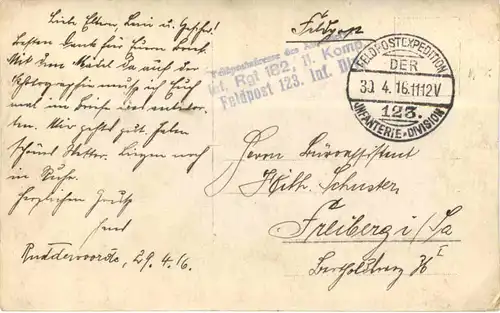 Liebe Eltern, Leni u. Geschw!
besten Dank für Euren Brief.
Mit dem Mädel da auf der
Photographie muss ich Euch
mal im Briefe
ten. Mir geht's gut, haben
schönes Wetter. Liegen noch
in Ruhe.
Herzlichen Gruß
Ruddervoorde, 29.4.16.
Feldpost
Inf. Rgt 182, 11. Komp.
Feldpost 123. Inf. Div.
FELDPOSTEXPEDITION
DER
30 4.16.11-12V
123.
INFANTERIE-DIVISION
Herrn Büroassistent
Schuster
Freiberg i/Sa
Bertholdsweg